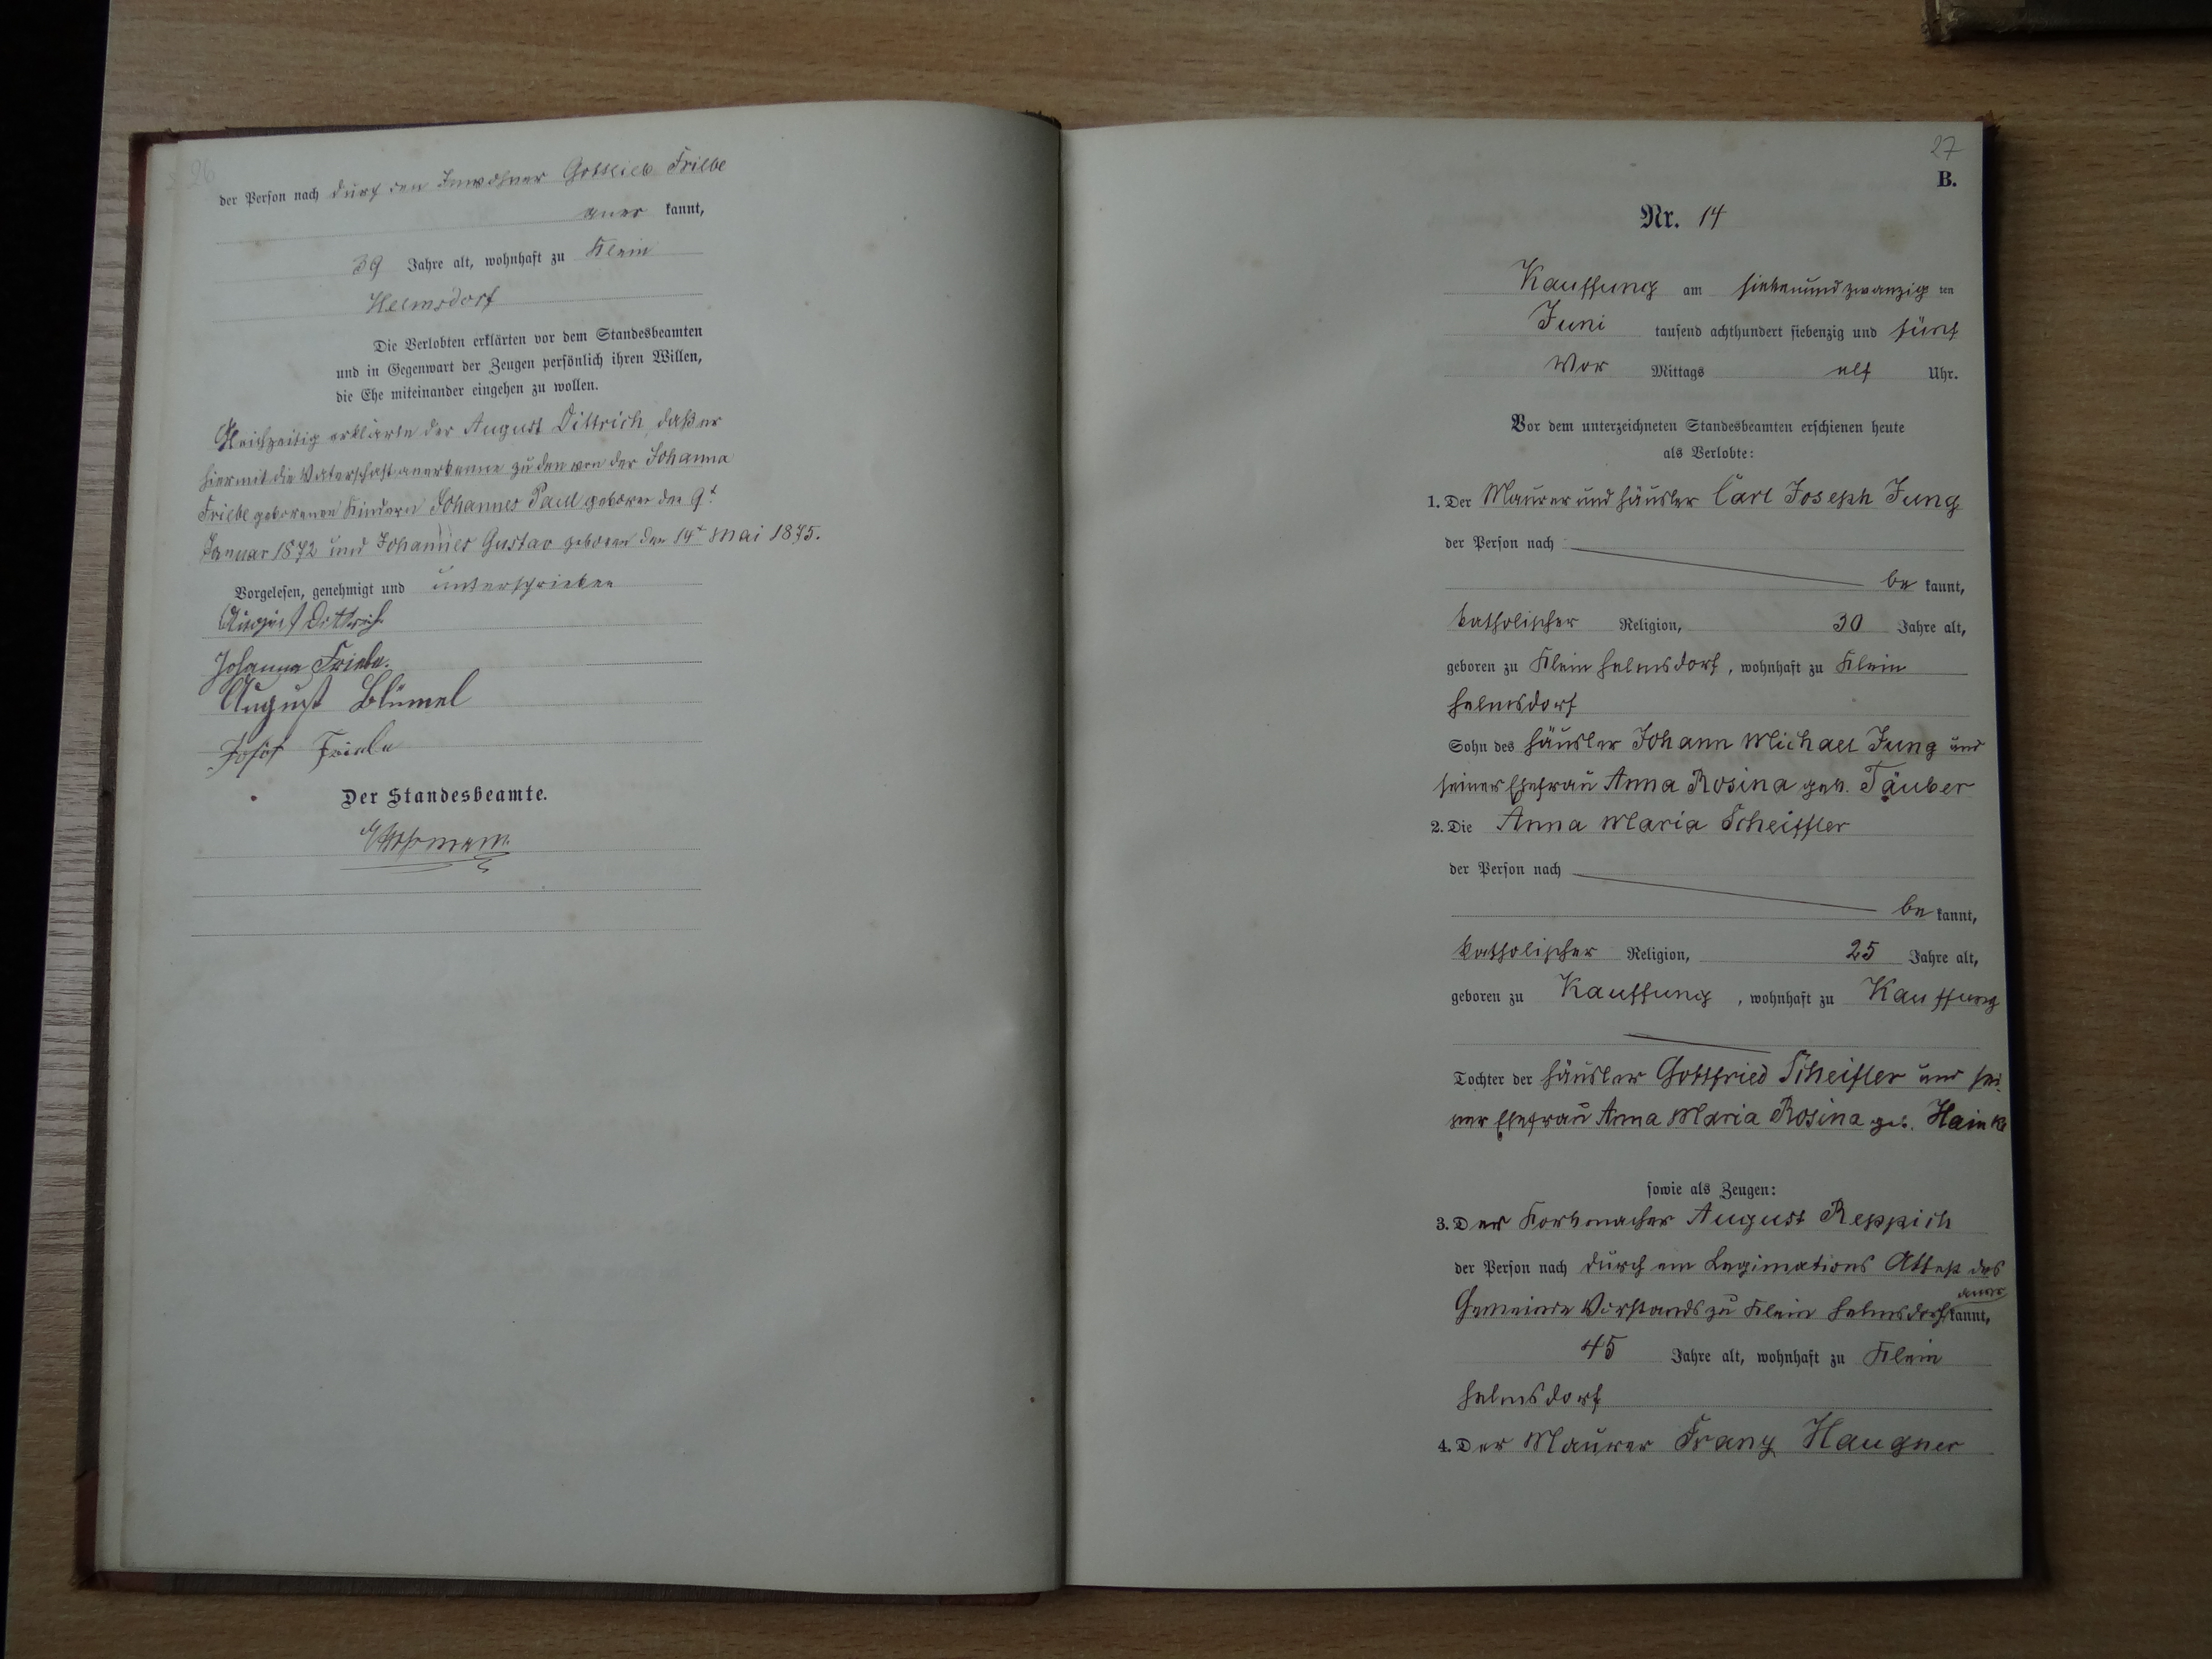 26
der Person nach durch den Inwohner Gottlieb Friebe
aner kannt,
39 Jahre alt, wohnhaft zu Klein
Helmsdorf
Die Verlobten erklärten vor dem Standesbeamten
und in Gegenwart der Zeugen persönlich ihren Willen,
die Ehe miteinander eingehen zu wollen.
Gleichzeitig erklärte der August Dittrich, daß er
hiermit die Vaterschaft anerkenne zu den von der Johanna
Friebe geborenen Kindern Johannes Paul geboren den 9t
Januar 1872 und Johannes Gustav geboren den 14t Mai 1875.
Vorgelesen, genehmigt und unterschrieben
August Dittrich
Johanna Friebe.
August Blümel
Josef Friebe
Der Standesbeamte.
27
B.
Nr. 14
Kauffung am siebenundzwanzig ten
Juni tausend achthundert siebenzig und fünf
Vor Mittags elf Uhr.
Vor dem unterzeichneten Standesbeamten erschienen heute
als Verlobte:
1. Der Maurer und Häusler Carl Joseph Jung
der Person nach
be kannt,
katholischer Religion, 30 Jahre alt,
geboren zu Klein Helmsdorf, wohnhaft zu Klein
Helmsdorf
Sohn des Häusler Johann Michael Jung und
seiner Ehefrau Anna Rosina geb. Täuber
2. Die Anna Maria Scheiffler
der Person nach
be kannt,
katholischer Religion, 25 Jahre alt,
geboren zu Kauffung, wohnhaft zu Kauffung
Tochter der Häusler Gottfried Scheifler und sei
ner Ehefrau Anna Maria Rosina geb. Hainke
sowie als Zeugen:
3. Der Korbmacher August Reppich
der Person nach durch ein Legimations Attest des
Gemeinde Vorstands zu Klein Helmsdorf aner kannt,
45 Jahre alt, wohnhaft zu Klein
Helmsdorf
4. Der Maurer Franz Haugner